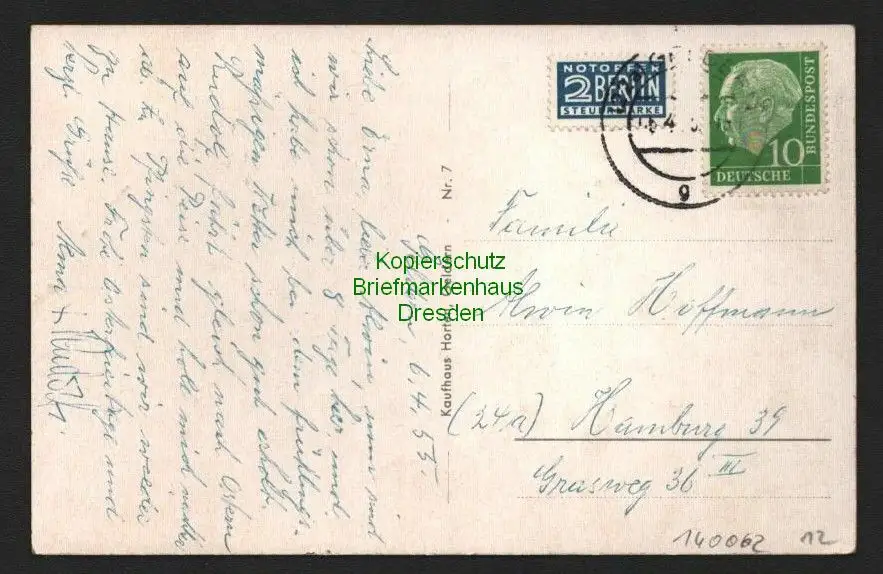 Geldern, 6.4.55.
Liebe Erna, lieber Alwin, nun sind
wir schon über 8 Tage hier und
ich habe mich bei dem frühlings-
mäßigen Wetter schon gut erholt.
Rudolf fährt gleich nach Ostern
auf die Reise und holt mich später
ab. Zu Pfingsten sind wir wieder
zu Hause. Frohe Osterfeiertage und
herzl. Grüße
Kaufhaus Horten, Geldern - Nr. 7
NOTOPFER
2 BERLIN
STEUERMARKE
10
DEUTSCHE
BUNDESPOST
g
Familie
Alwin Hoffmann
(24a) Hamburg 39
Grasweg 36 III
140062 12
Kopierschutz
Briefmarkenhaus
Dresden